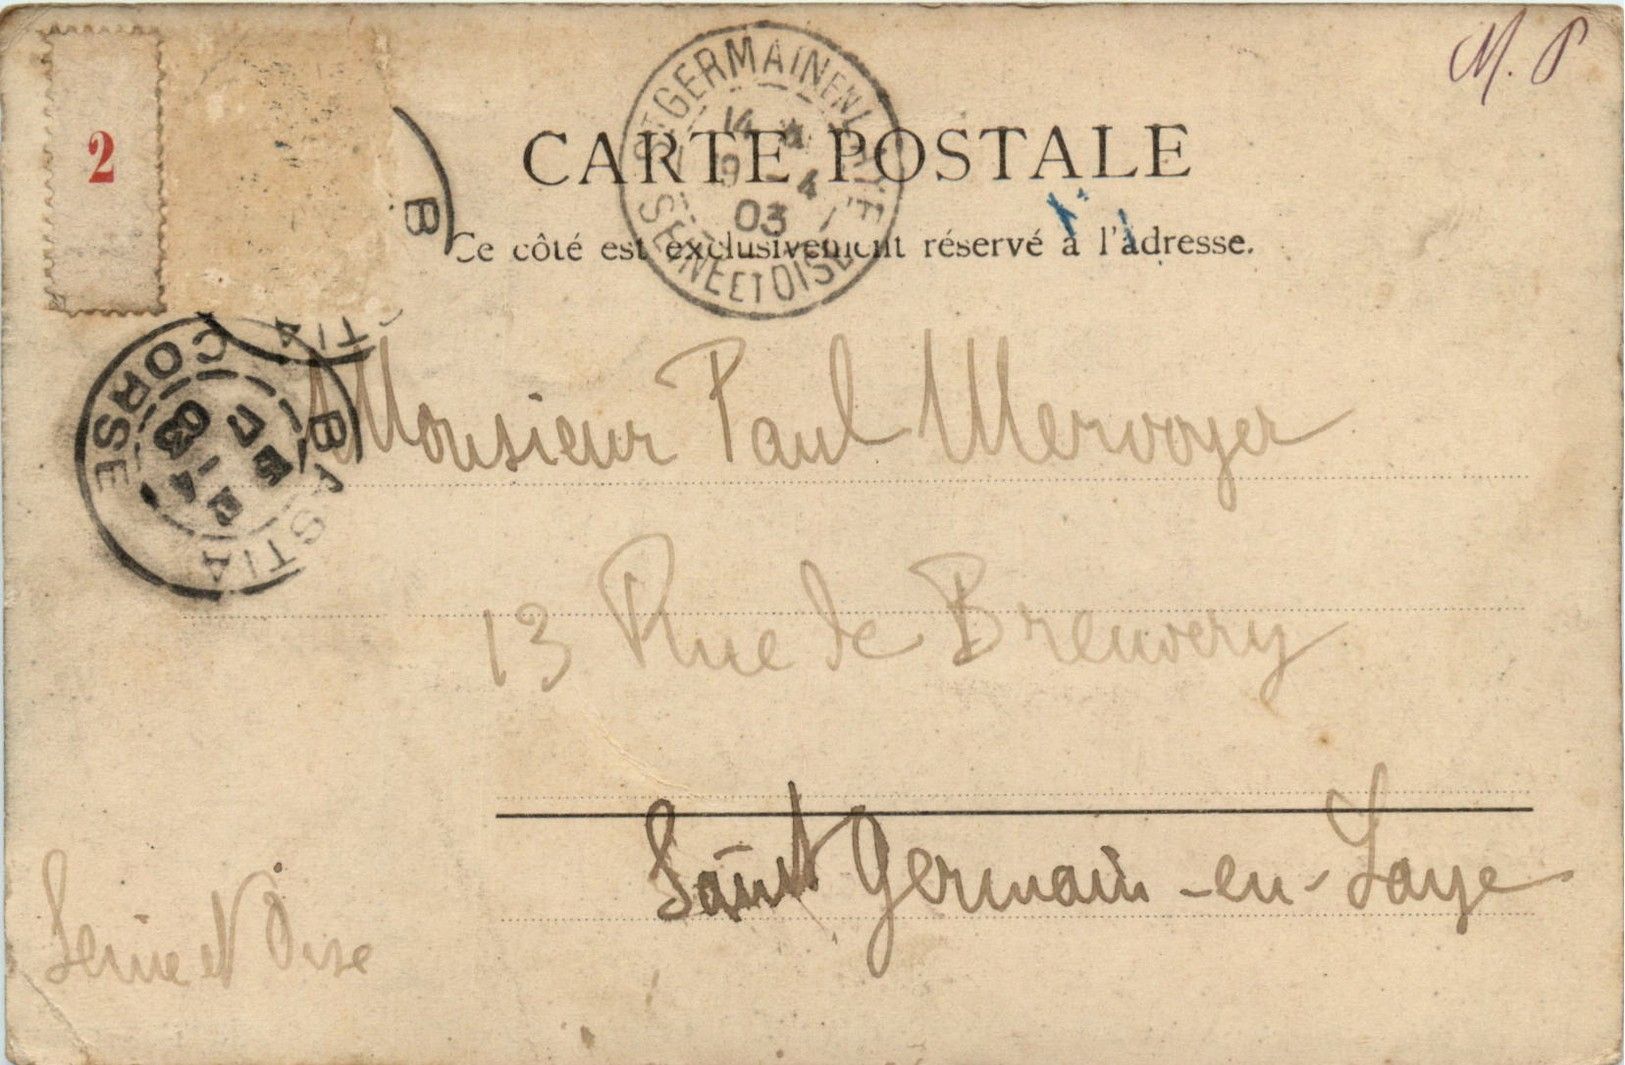 M. P
2
ST GERMAIN EN LAYE
9 - 4
03
SEINE ET OISE
CARTE POSTALE
Ce côté est exclusivement réservé à l'adresse.
B
TIA
BASTIA
7
-4
03
CORSE
Monsieur Paul Mervoyer
13 Rue de Breuvery
Saint Germain-en-Laye
Seine et Oise